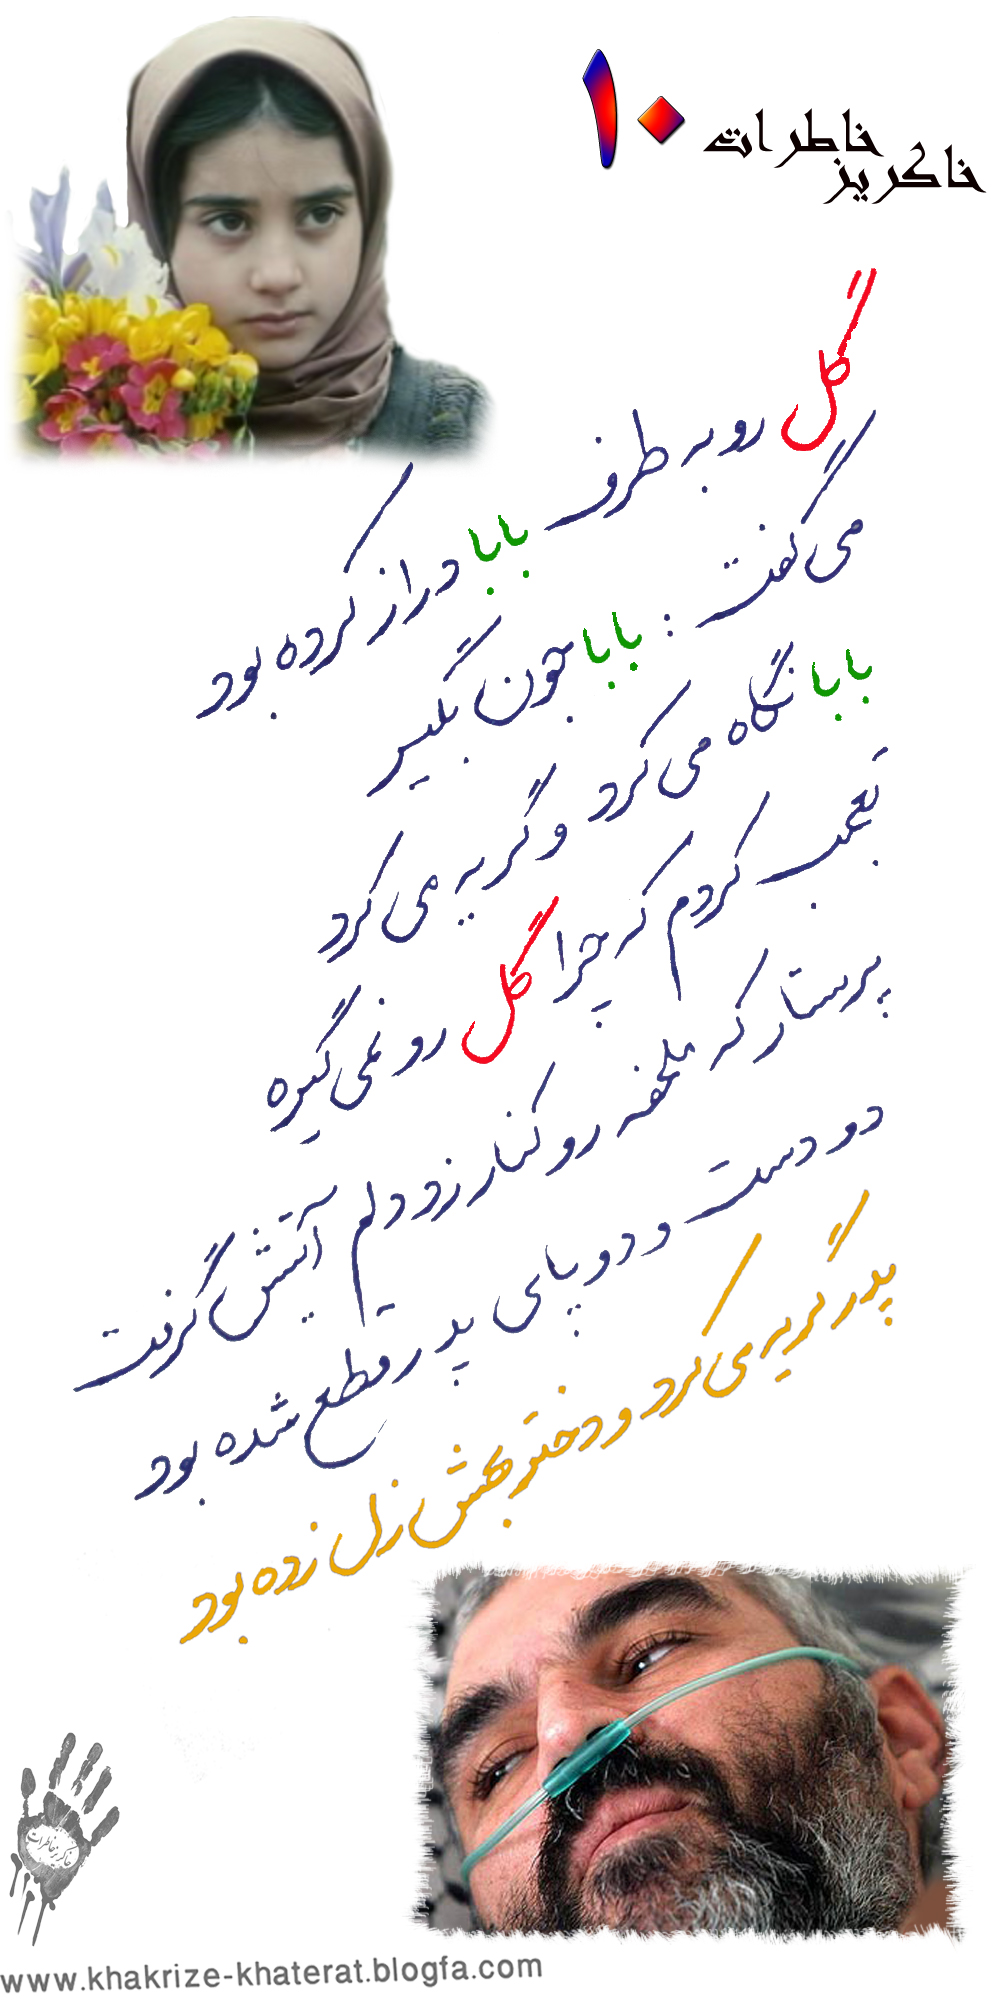 خاکریز خاطرات ۱۰
گل رو به طرف بابا دراز کرده بود
می گفت : بابا جون بگیر
بابا نگاه می کرد و گریه می کرد
تعجب کردم که چرا گل رو نمی گیره
پرستار که ملحفه رو کنار زد دلم آتیش گرفت
دو دست و دو پای پدر قطع شده بود
پدر گریه می کرد و دختر بهش زل زده بود
خاکریز خاطرات
www.khakrize-khaterat.blogfa.com